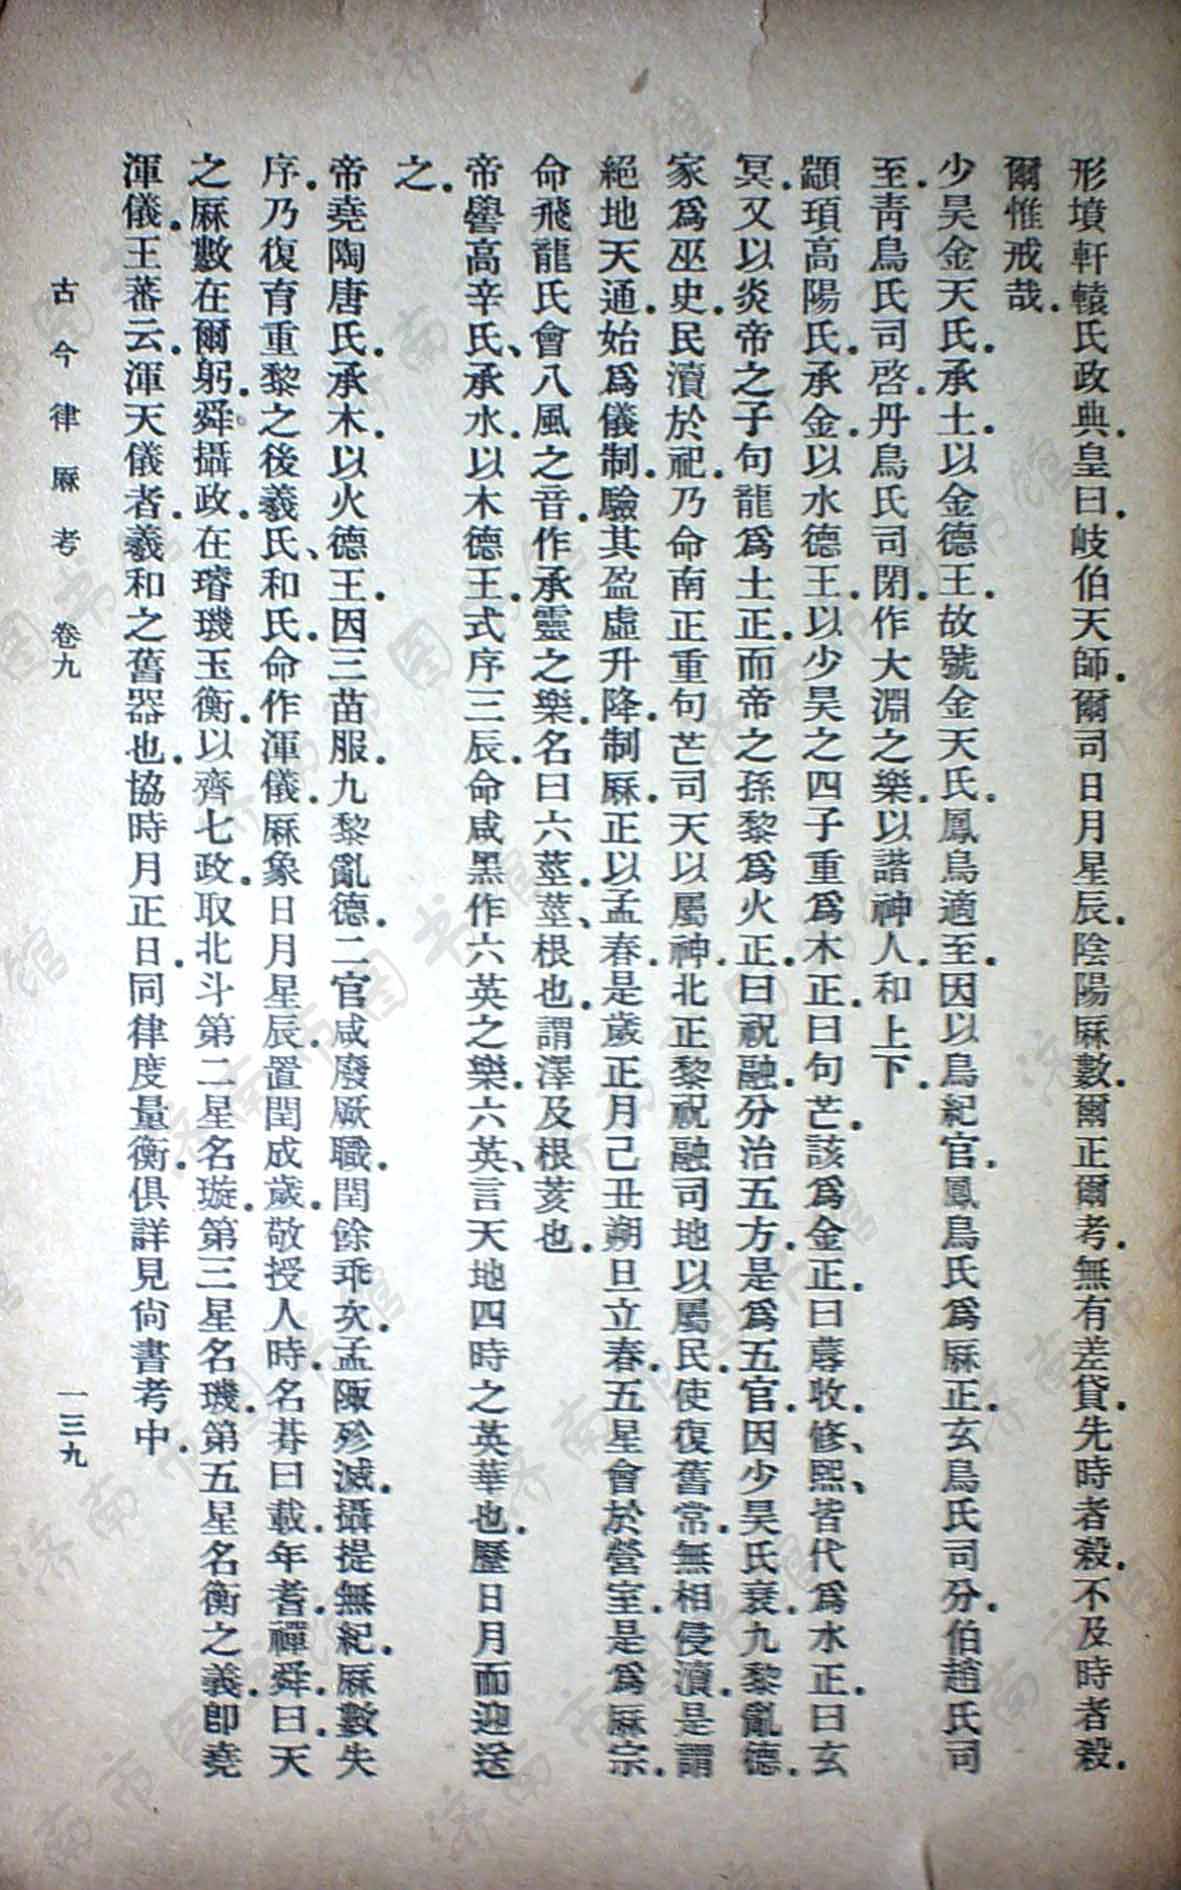 形墳軒轅氏政典．皇曰．岐伯天師．爾司日月星辰．陰陽厤數．爾正爾考．無有差貸．先時者殺．不及時者殺．
爾惟戒哉．
少昊金天氏．承土．以金德王．故號金天氏．鳳鳥適至．因以鳥紀官．鳳鳥氏爲厤正．玄鳥氏司分．伯趙氏司
至．青鳥氏司啓．丹鳥氏司閉．作大淵之樂．以諧神人．和上下．
顓頊高陽氏．承金．以水德王．以少昊之四子重爲木正．曰句芒．該爲金正．曰蓐收．修、熙、皆代爲水正．曰玄
冥．又以炎帝之子句龍爲土正．而帝之孫黎爲火正．曰祝融．分治五方．是爲五官．因少昊氏衰．九黎亂德．
家爲巫史．民瀆於祀．乃命南正重句芒司天以屬神．北正黎祝融司地以屬民．使復舊常．無相侵瀆．是謂
絕地天通．始爲儀制．驗其盈虛升降．制厤．正以孟春．是歲正月己丑朔旦立春．五星會於營室．是爲厤宗．
命飛龍氏會八風之音．作承靈之樂．名曰六莖．莖、根也．謂澤及根荄也．
帝嚳高辛氏、承水．以木德王．式序三辰．命咸黑作六英之樂．六英、言天地四時之英華也．歷日月而迎送
之．
帝堯陶唐氏．承木．以火德王．因三苗服．九黎亂德．二官咸廢厥職．閏餘乖次．孟陬殄滅．攝提無紀．厤數失
序．乃復育重黎之後羲氏、和氏．命作渾儀．厤象日月星辰．置閏成歲．敬授人時．名朞曰載．年耆．禪舜．曰．天
之厤數在爾躬．舜攝政．在璿璣玉衡．以齊七政．取北斗第二星名璇．第三星名璣．第五星名衡之義．卽堯
渾儀．王蕃云．渾天儀者．羲和之舊器也．協時月正日．同律度量衡．俱詳見尙書考中．
古今律厤考 卷九
一三九
济南市图书馆